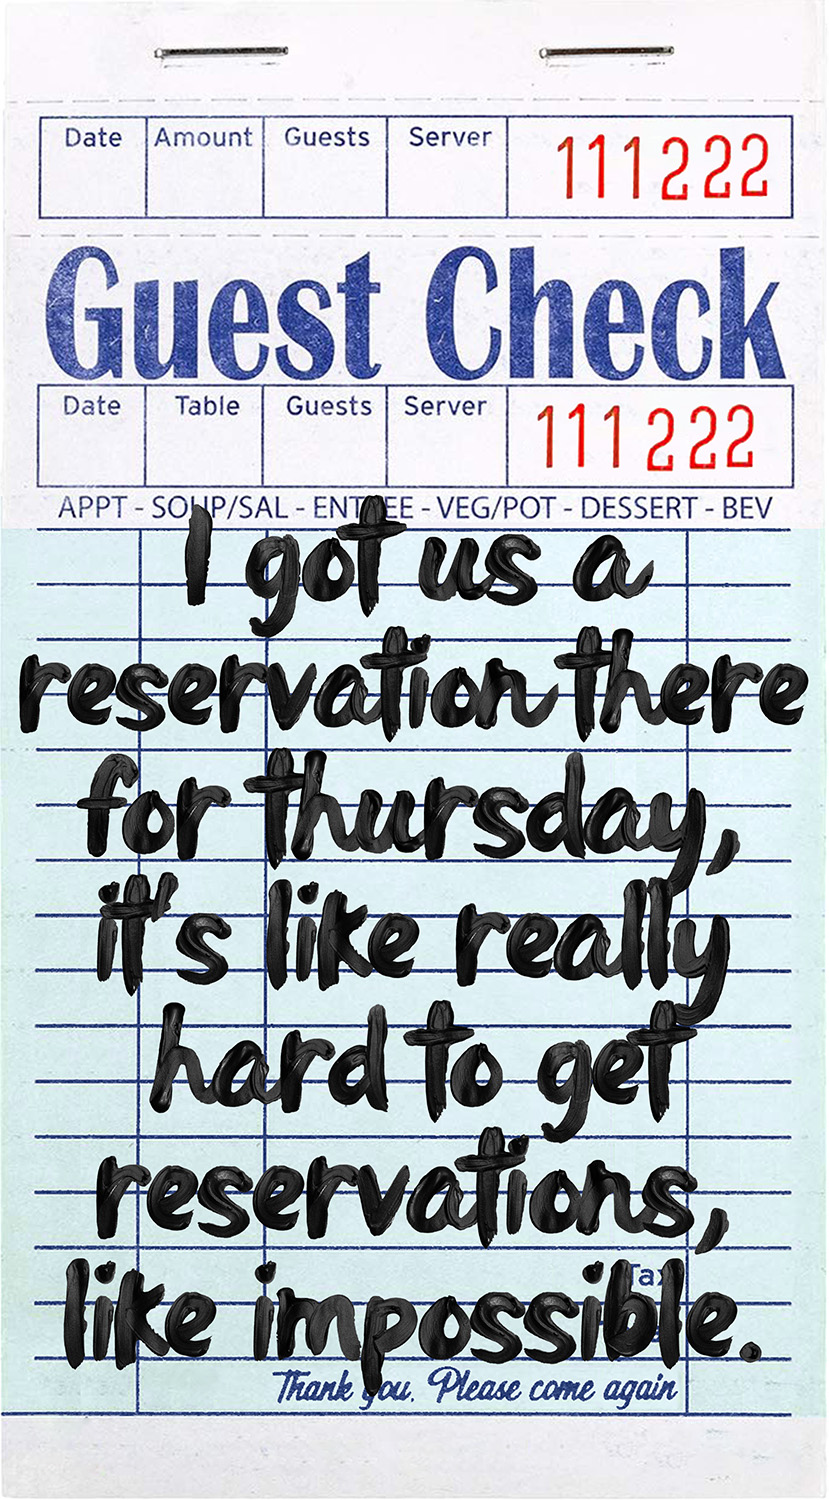 Date Amount Guests Server 111222
Guest Check
Date Table Guests Server 111222
APPT - SOUP/SAL - ENTREE - VEG/POT - DESSERT - BEV
I got us a
reservation there
for thursday,
it's like really
hard to get
reservations,
Tax
like impossible.
Thank you. Please come again